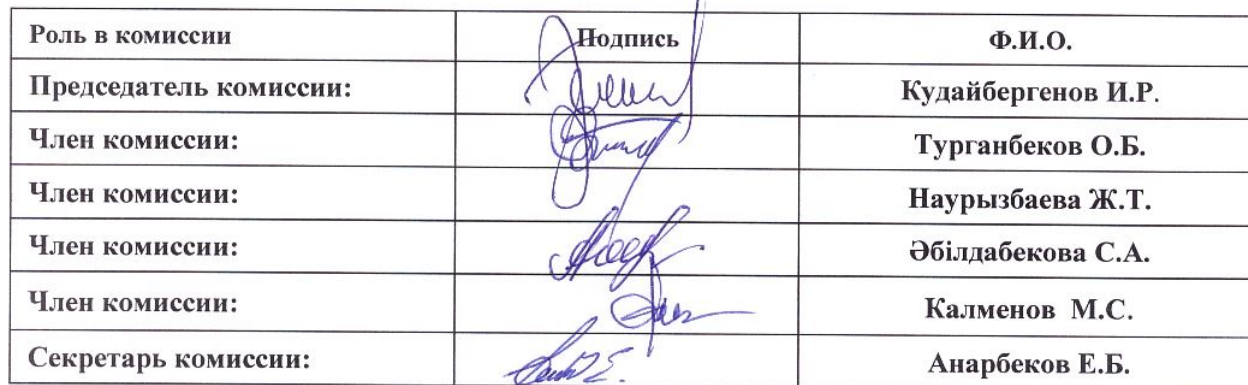 Роль в комиссии Подпись Ф.И.О.
Председатель комиссии: Кудайбергенов И.Р.
Член комиссии: Турганбеков О.Б.
Член комиссии: Наурызбаева Ж.Т.
Член комиссии: Әбілдабекова С.А.
Член комиссии: Калменов М.С.
Секретарь комиссии: Анарбеков Е.Б.